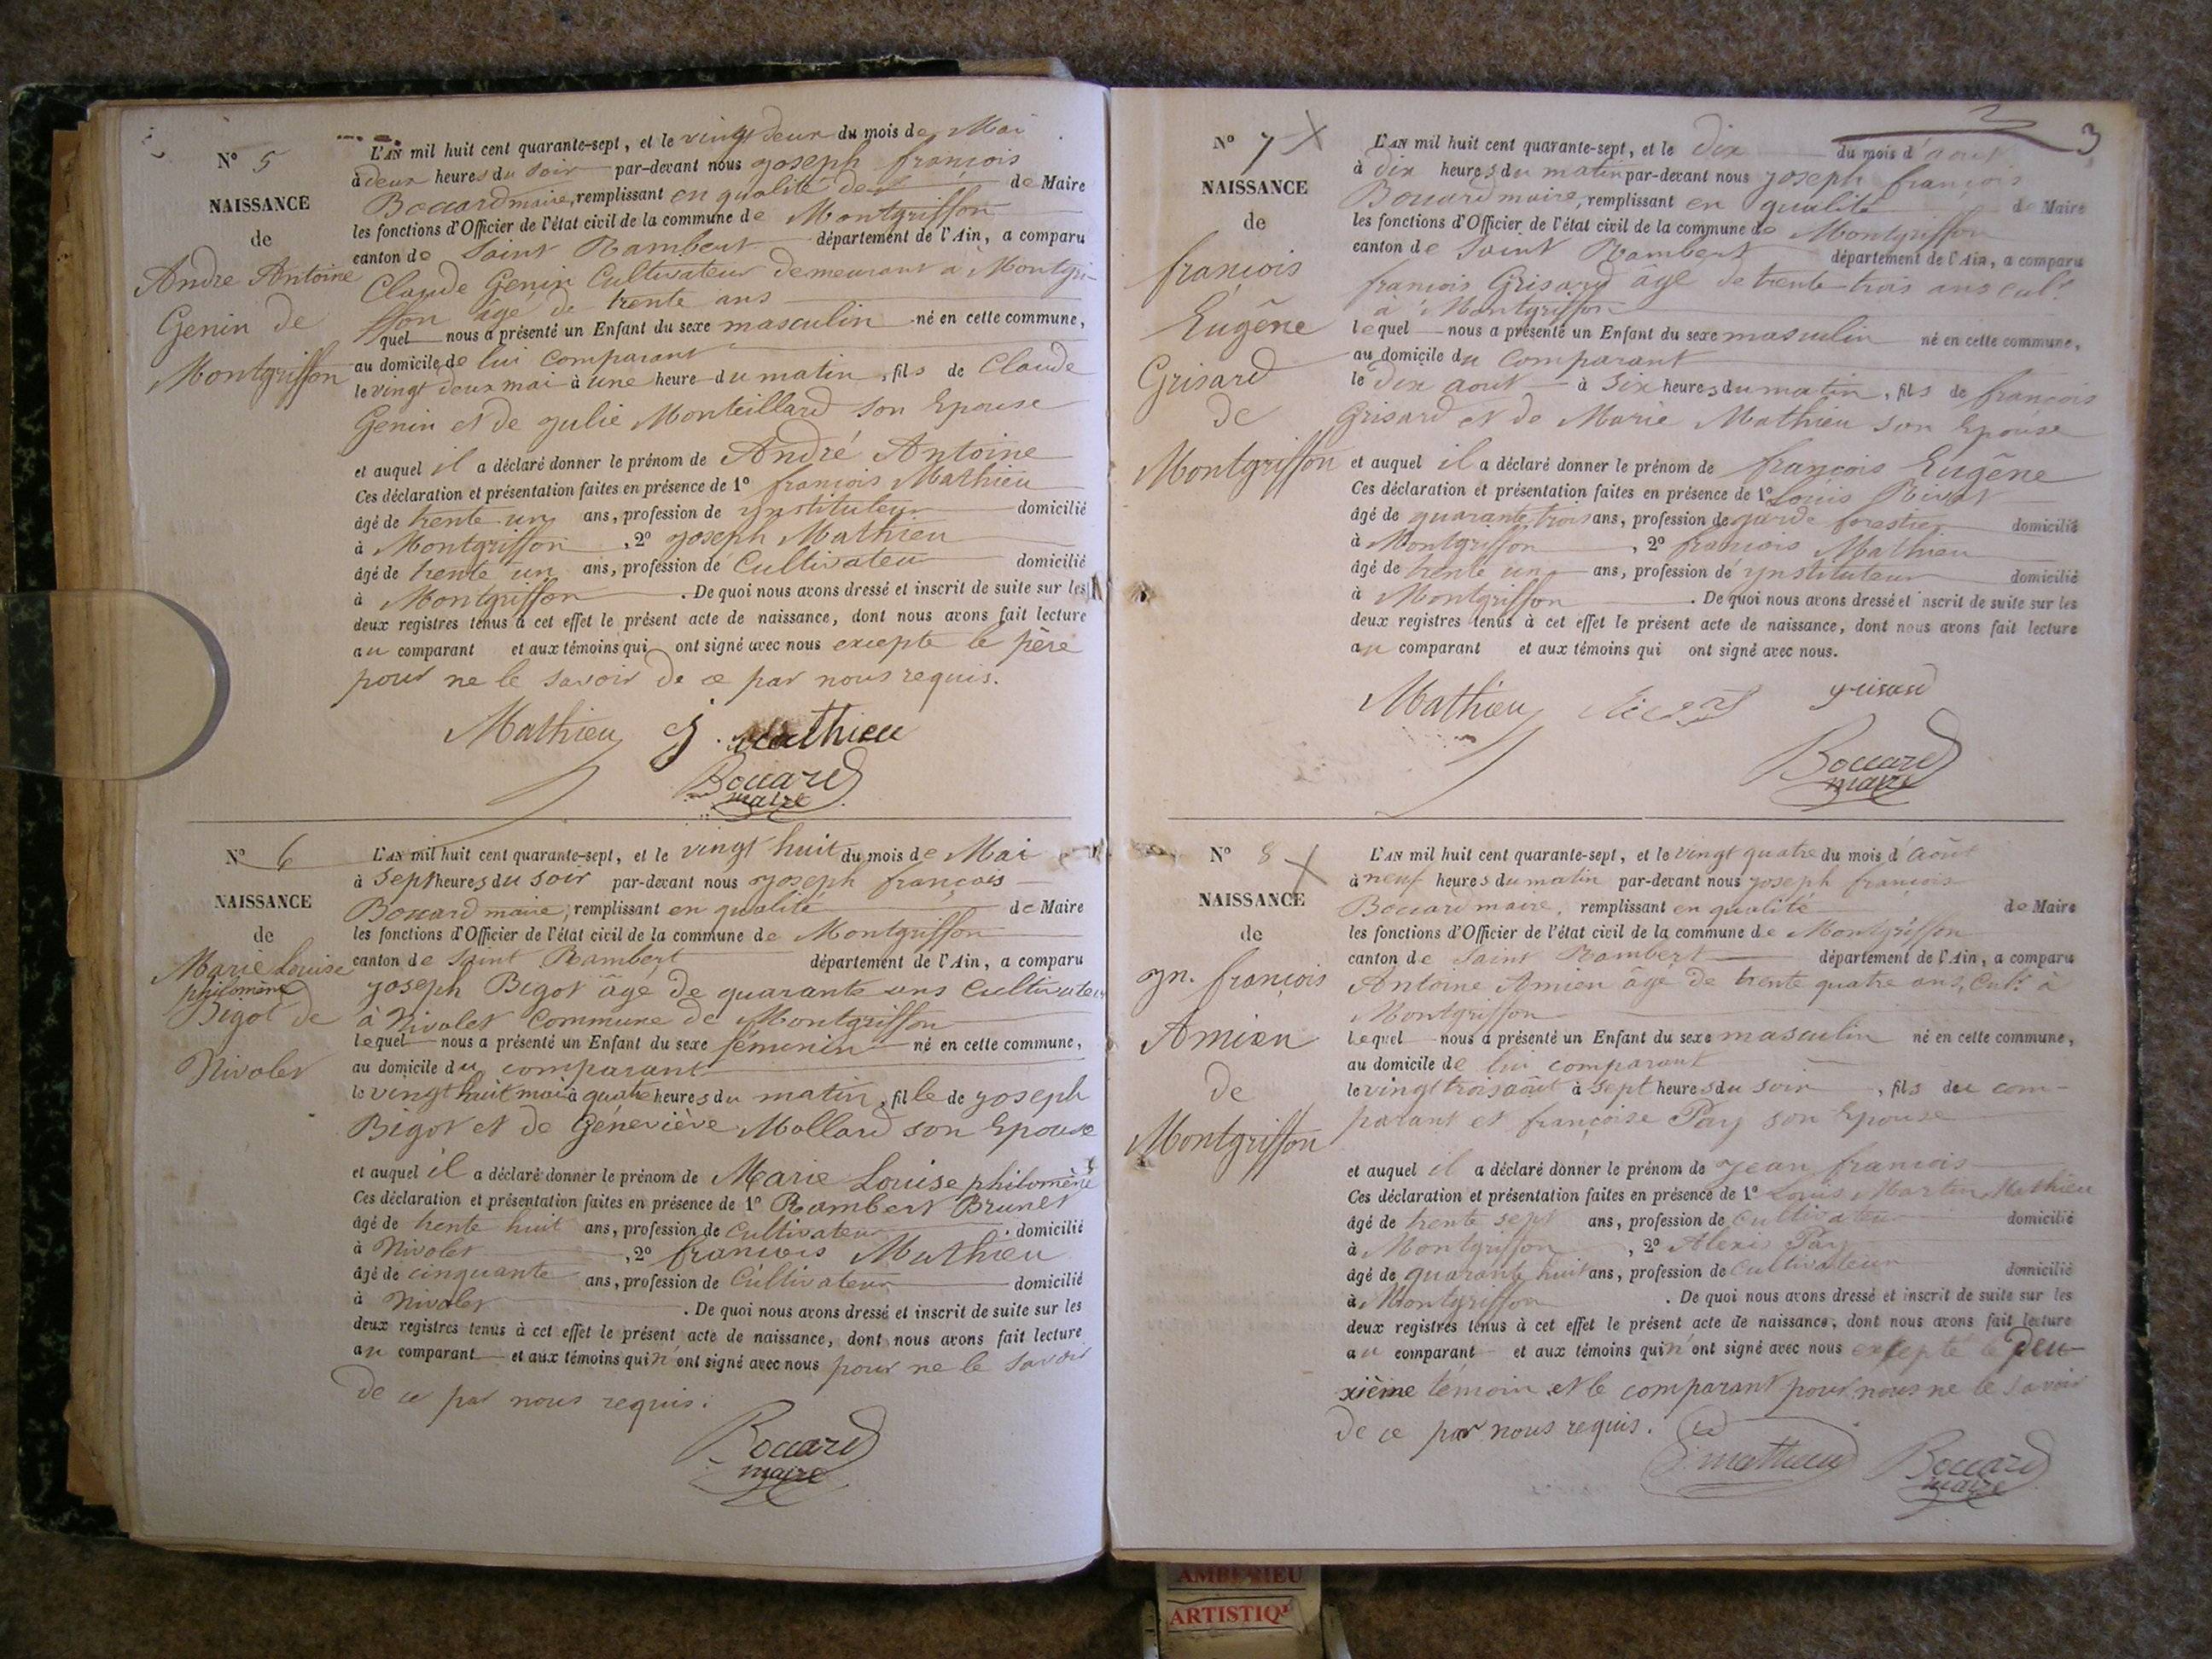 N° 5
NAISSANCE
de
Andre Antoine
Genin de
Montgriffon
L'AN mil huit cent quarante-sept, et le vingt deux du mois de Mai
à deux heures du soir par-devant nous joseph françois
Boccard maire, remplissant en qualité de Maire
les fonctions d'Officier de l'état civil de la commune de Montgriffon
canton de Saint Rambert département de l'Ain, a comparu
Claude Genin Cultivateur demeurant a Montgri-
ffon âgé de trente ans
quel nous a présenté un Enfant du sexe masculin né en cette commune,
au domicile de lui comparant
le vingt deux mai à une heure du matin, fils de Claude
Genin et de julie Monteillard son Epouse
et auquel il a déclaré donner le prénom de André Antoine
Ces déclaration et présentation faites en présence de 1° francois Mathieu
âgé de trente un ans, profession de ynstituteur domicilié
à Montgriffon, 2° joseph Mathieu
âgé de trente un ans, profession de Cultivateur domicilié
à Montgriffon. De quoi nous avons dressé et inscrit de suite sur les
deux registres tenus à cet effet le présent acte de naissance, dont nous avons fait lecture
au comparant et aux témoins qui ont signé avec nous excepte le père
pour ne le savoir de ce par nous requis.
Mathieu J. Mathieu
Boccard
maire
N° 6
NAISSANCE
de
Marie Louise
philomène
Bigot de
Nivolet
L'AN mil huit cent quarante-sept, et le vingt huit du mois de Mai
à sept heures du soir par-devant nous joseph françois
Boccard maire, remplissant en qualité de Maire
les fonctions d'Officier de l'état civil de la commune de Montgriffon
canton de Saint Rambert département de l'Ain, a comparu
joseph Bigot âgé de quarante ans Cultivateur
à Nivolet Commune de Montgriffon
lequel nous a présenté un Enfant du sexe féminin né en cette commune,
au domicile du comparant
le vingt huit mai à quatre heures du matin, fille de joseph
Bigot et de Géneviève Mollard son Epouse
et auquel il a déclaré donner le prénom de Marie Louise philomène
Ces déclaration et présentation faites en présence de 1° Rambert Brunet
âgé de trente huit ans, profession de Cultivateur. domicilié
à Nivolet, 2° francois Mathieu
âgé de cinquante ans, profession de Cultivateur domicilié
à Nivolet. De quoi nous avons dressé et inscrit de suite sur les
deux registres tenus à cet effet le présent acte de naissance, dont nous avons fait lecture
au comparant et aux témoins qui n'ont signé avec nous pour ne le savoir
de ce par nous requis.
Boccard
maire
3
N° 7
NAISSANCE
de
françois
Eugêne
Grisard
de
Montgriffon
L'AN mil huit cent quarante-sept, et le dix du mois d'aout
à dix heures du matin par-devant nous joseph françois
Boccard maire, remplissant en qualité de Maire
les fonctions d'Officier de l'état civil de la commune de Montgriffon
canton de Saint Rambert département de l'Ain, a comparu
francois Grisard âgé de trente trois ans cult.
à Montgriffon
lequel nous a présenté un Enfant du sexe masculin né en cette commune,
au domicile du comparant
le dix aout à six heures du matin, fils de francois
Grisard et de Marie Mathieu son Epouse
et auquel il a déclaré donner le prénom de françois Eugêne
Ces déclaration et présentation faites en présence de 1° Louis
âgé de quarante trois ans, profession de garde forestier domicilié
à Montgriffon, 2° francois Mathieu
âgé de trente un ans, profession de ynstituteur domicilié
à Montgriffon. De quoi nous avons dressé et inscrit de suite sur les
deux registres tenus à cet effet le présent acte de naissance, dont nous avons fait lecture
au comparant et aux témoins qui ont signé avec nous.
Mathieu grisard
Boccard
maire
N° 8
NAISSANCE
de
jn. françois
Amien
de
Montgriffon
L'AN mil huit cent quarante-sept, et le vingt quatre du mois d'août
à neuf heures du matin par-devant nous joseph françois
Boccard maire, remplissant en qualité de Maire
les fonctions d'Officier de l'état civil de la commune de Montgriffon
canton de Saint Rambert département de l'Ain, a comparu
Antoine Amien âgé de trente quatre ans, Cult. à
Montgriffon
Lequel nous a présenté un Enfant du sexe masculin né en cette commune,
au domicile de lui comparant
le vingt trois août à sept heures du soir, fils du com-
parant et françoise Pay son Epouse
et auquel il a déclaré donner le prénom de jean francois
Ces déclaration et présentation faites en présence de 1° Louis Martin Mathieu
âgé de trente sept ans, profession de Cultivateur domicilié
à Montgriffon, 2° Alexis Pay
âgé de quarante huit ans, profession de Cultivateur domicilié
à Montgriffon. De quoi nous avons dressé et inscrit de suite sur les
deux registres tenus à cet effet le présent acte de naissance, dont nous avons fait lecture
au comparant et aux témoins qui n'ont signé avec nous excepté le deu-
xième témoin et le comparant pour nous ne le savoir
de ce par nous requis.
mathieu Boccard
maire
AMBERIEU
ARTISTIQ